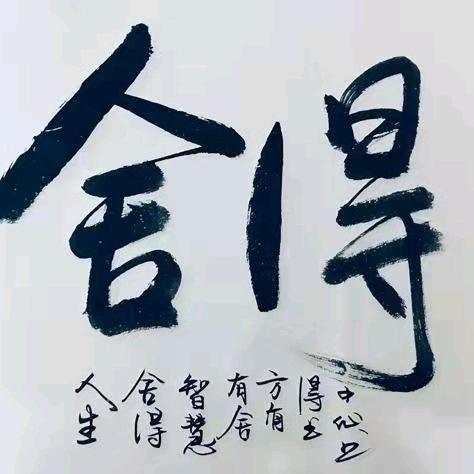 舍得
人生
舍得
智慧
有舍
方有
得